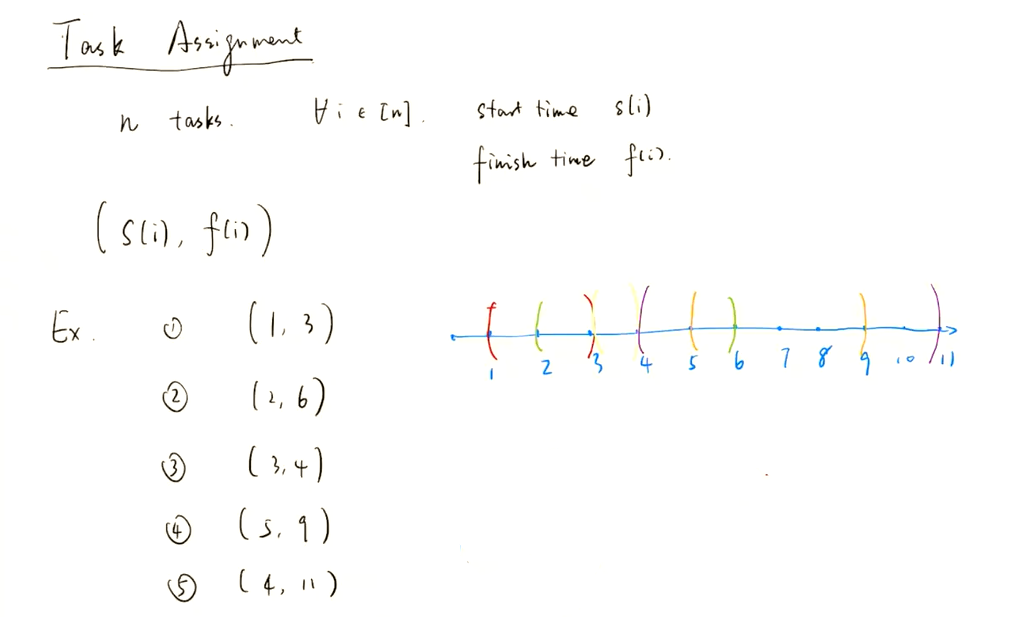 Task Assignment
n tasks. ∀ i ∈ [n]. start time s(i)
finish time f(i).
(s(i), f(i))
Ex. ① (1, 3)
② (2, 6)
③ (3, 4)
④ (5, 9)
⑤ (4, 11)
1 2 3 4 5 6 7 8 9 10 11